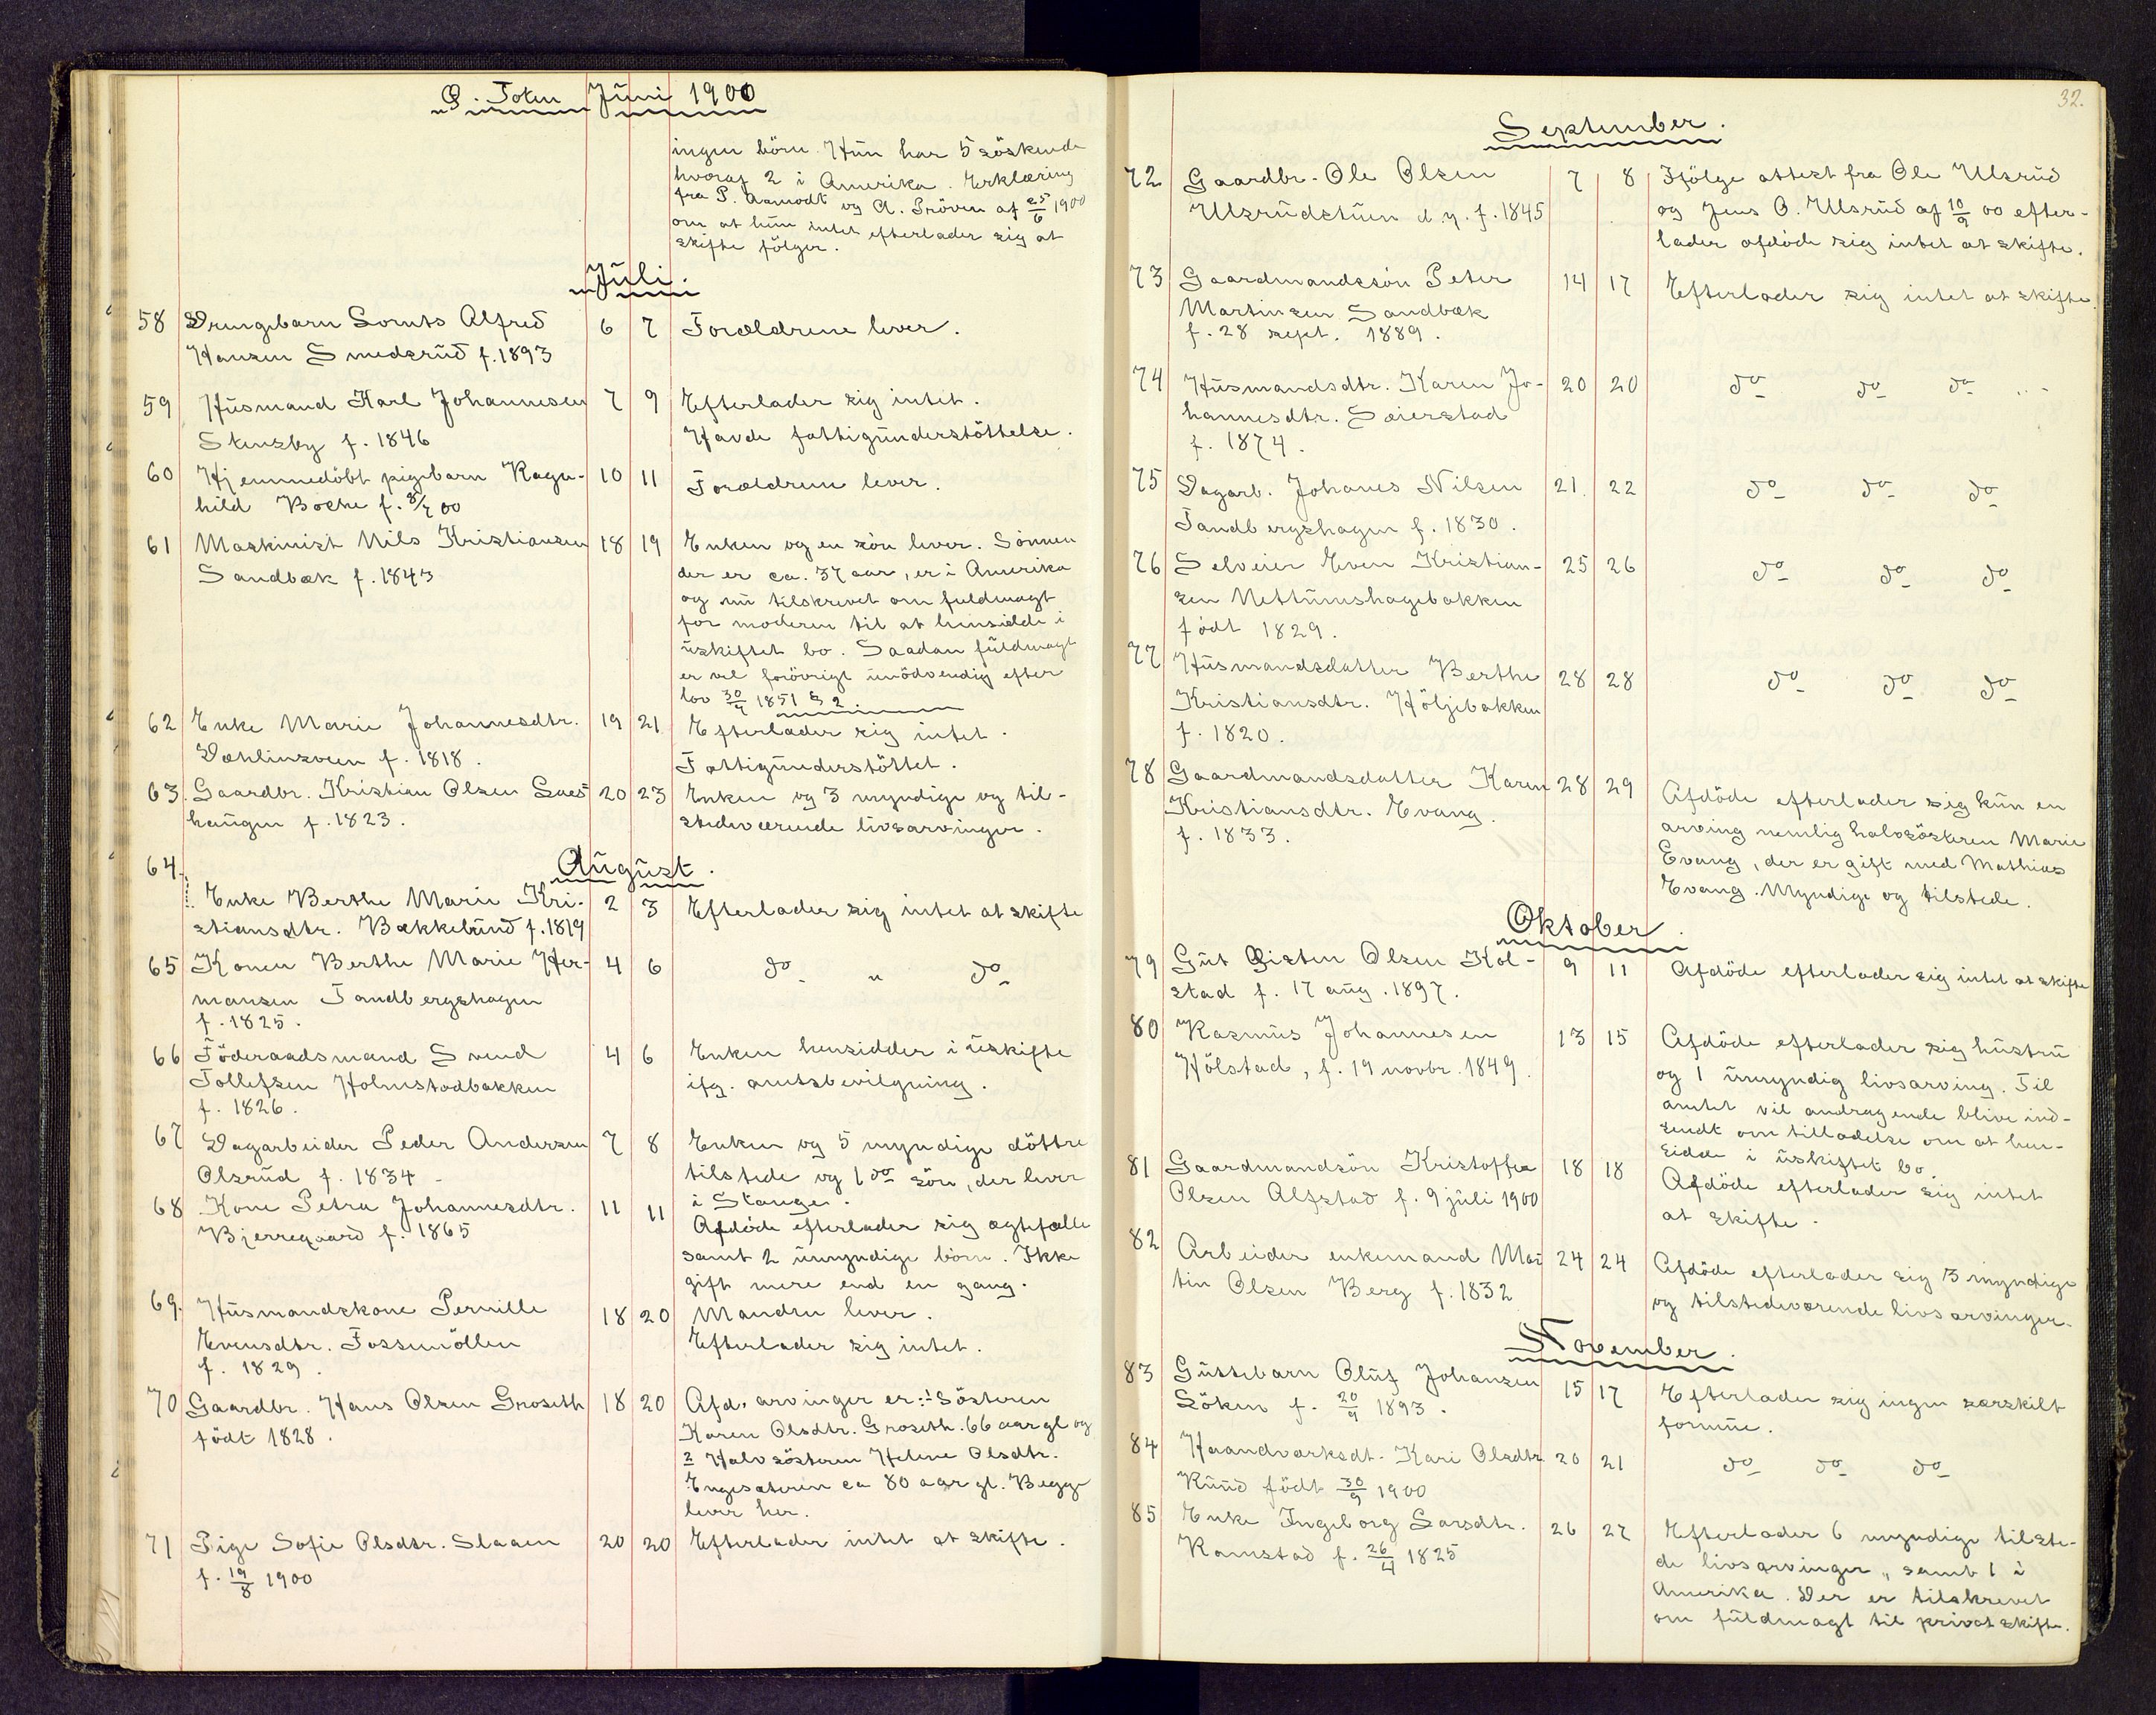 Ø. Toten Juni 1900
ingen börn. Hun har 5 söskende
hvoraf 2 i Amerika. Erklæring
fra P. Aamodt og A. Pröven af 25/6 1900
om at hun intet efterlader sig at
skifte fölger.
Juli.
58 Drengebarn Lornts Alfred 6 7 Forældrene lever.
Hansen Smedsrud f. 1893
59 Husmand Karl Johannesen 7 9 Efterlader sig intet.
Stensby f. 1846 Havde fattigunderstöttelse.
60 Hjemmedöbt pigebarn Ragn- 10 11 Forældrene lever.
hild Boche f. 8/7 00
61 Maskinist Nils Kristiansen 18 19 Enken og en sön lever. Sönnen
Sandbæk f. 1843 der er ca. 37 aar, er i Amerika
og nu tilskrevet om fuldmagt
for moderen til at hensidde i
uskiftet bo. Saadan fuldmagt
er vel forövrigt unödvendig efter
lov 30/7 1851 § 2.
62 Enke Marie Johannesdtr. 19 21 Efterlader sig intet.
Dæhlinsveen f. 1818. Fattigunderstöttet.
63. Gaardbr. Kristian Olsen Laes- 20 23 Enken og 3 myndige og til-
haugen f. 1823. stedeværende livsarvinger.
August.
64. Enke Berthe Marie Kri- 2 3 Efterlader sig intet at skifte
stiansdtr. Bækkelund f. 1819
65 Konen Berthe Marie Her- 4 6 do " do
mansen Tandbergshagen
f. 1825.
66 Föderaadsmand Svend 4 6 Enken hensidder i uskifte
Tollefsen Holmstadbakken ifg. amtsbevilgning.
f. 1826.
67 Dagarbeider Peder Andersen 7 8 Enken og 5 myndige döttre
Olsrud f. 1834 tilstede og 1 do sön, der lever
i Stange.
68 Kone Petra Johannesdtr. 11 11 Afdöde efterlader sig ægtefælle
Bjerregaard f. 1865 samt 2 umyndige börn. Ikke
gift mere end en gang.
69. Husmandskone Pernille 18 20 Manden lever.
Evensdtr. Fossemöllen Efterlader sig intet.
f. 1829.
70 Gaardbr. Hans Olsen Groseth 18 20 Afd. arvinger er: 1 Sösteren
födt 1828. Karen Olsdtr. Groseth. 66 aar gl og
2 Halvsösteren Helene Olsdtr.
Engesæteren ca 80 aar gl. Begge
lever her.
71 Pige Sofie Olsdtr. Slaaen 20 20 Efterlader intet at skifte.
f. 19/8 1900
32.
September.
72 Gaardbr. Ole Olsen 7 8 Ifölge attest fra Ole Ulsrud
Ulsrudstuen d. y. f. 1845 og Jens O. Ulsrud af 10/9 00 efter-
lader afdöde sig intet at skifte.
73 Gaardmandssön Peter 14 17 Efterlader sig intet at skifte
Martinsen Sandbæk
f. 28 sept. 1889.
74 Husmandsdtr. Karen Jo- 20 20 do do do
hannesdtr. Seierstad
f. 1874.
75 Dagarb. Johanes Nilsen 21 22 do do do
Tandbergshagen f. 1830.
76 Selveier Even Kristian- 25 26 do do do
sen Nettumshagebakken
födt 1829.
77 Husmandsdatter Berthe 28 28 do do do
Kristiansdtr. Höljebakken
f. 1820.
78 Gaardmandsdatter Karen 28 29 Afdöde efterlader sig kun en
Kristiansdtr. Evang. arving nemlig halvsösteren Marie
f. 1833. Evang, der er gift med Mathias
Evang. Myndige og tilstede.
Oktober.
79 Gut Gisten Olsen Kol- 9 11 Afdöde efterlader sig intet at skifte
stad f. 17 aug. 1897.
80 Rasmus Johannesen 13 15 Afdöde efterlader sig hustru
Hölstad, f. 19 novbr. 1849. og 1 umyndig livsarving. Til
amtet vil andragende blive ind-
sendt om tilladelse om at hen-
sidde i uskiftet bo.
81 Gaardmandsön Kristoffer 18 18 Afdöde efterlader sig intet
Olsen Alfstad f. 9 juli 1900 at skifte.
82 Arbeider enkemand Mar 24 24 Afdöde efterlader sig 3 myndige
tin Olsen Berg f. 1832 og tilstedeværende livsarvinger.
November.
83 Guttebarn Oluf Johansen 15 17 Efterlader sig ingen særskilt
Söken f. 20/9 1893. formue.
84 Haandværksdt. Kari Olsdtr 20 21 do do do
Ruud födt 30/9 1900
85 Enke Ingeborg Larsdtr. 26 27 Efterlader 6 myndige tilste-
Ramstad f. 26/4 1825 de livsarvinger, samt 1 i
Amerika. Der er tilskrevet
om fuldmagt til privat skifte.